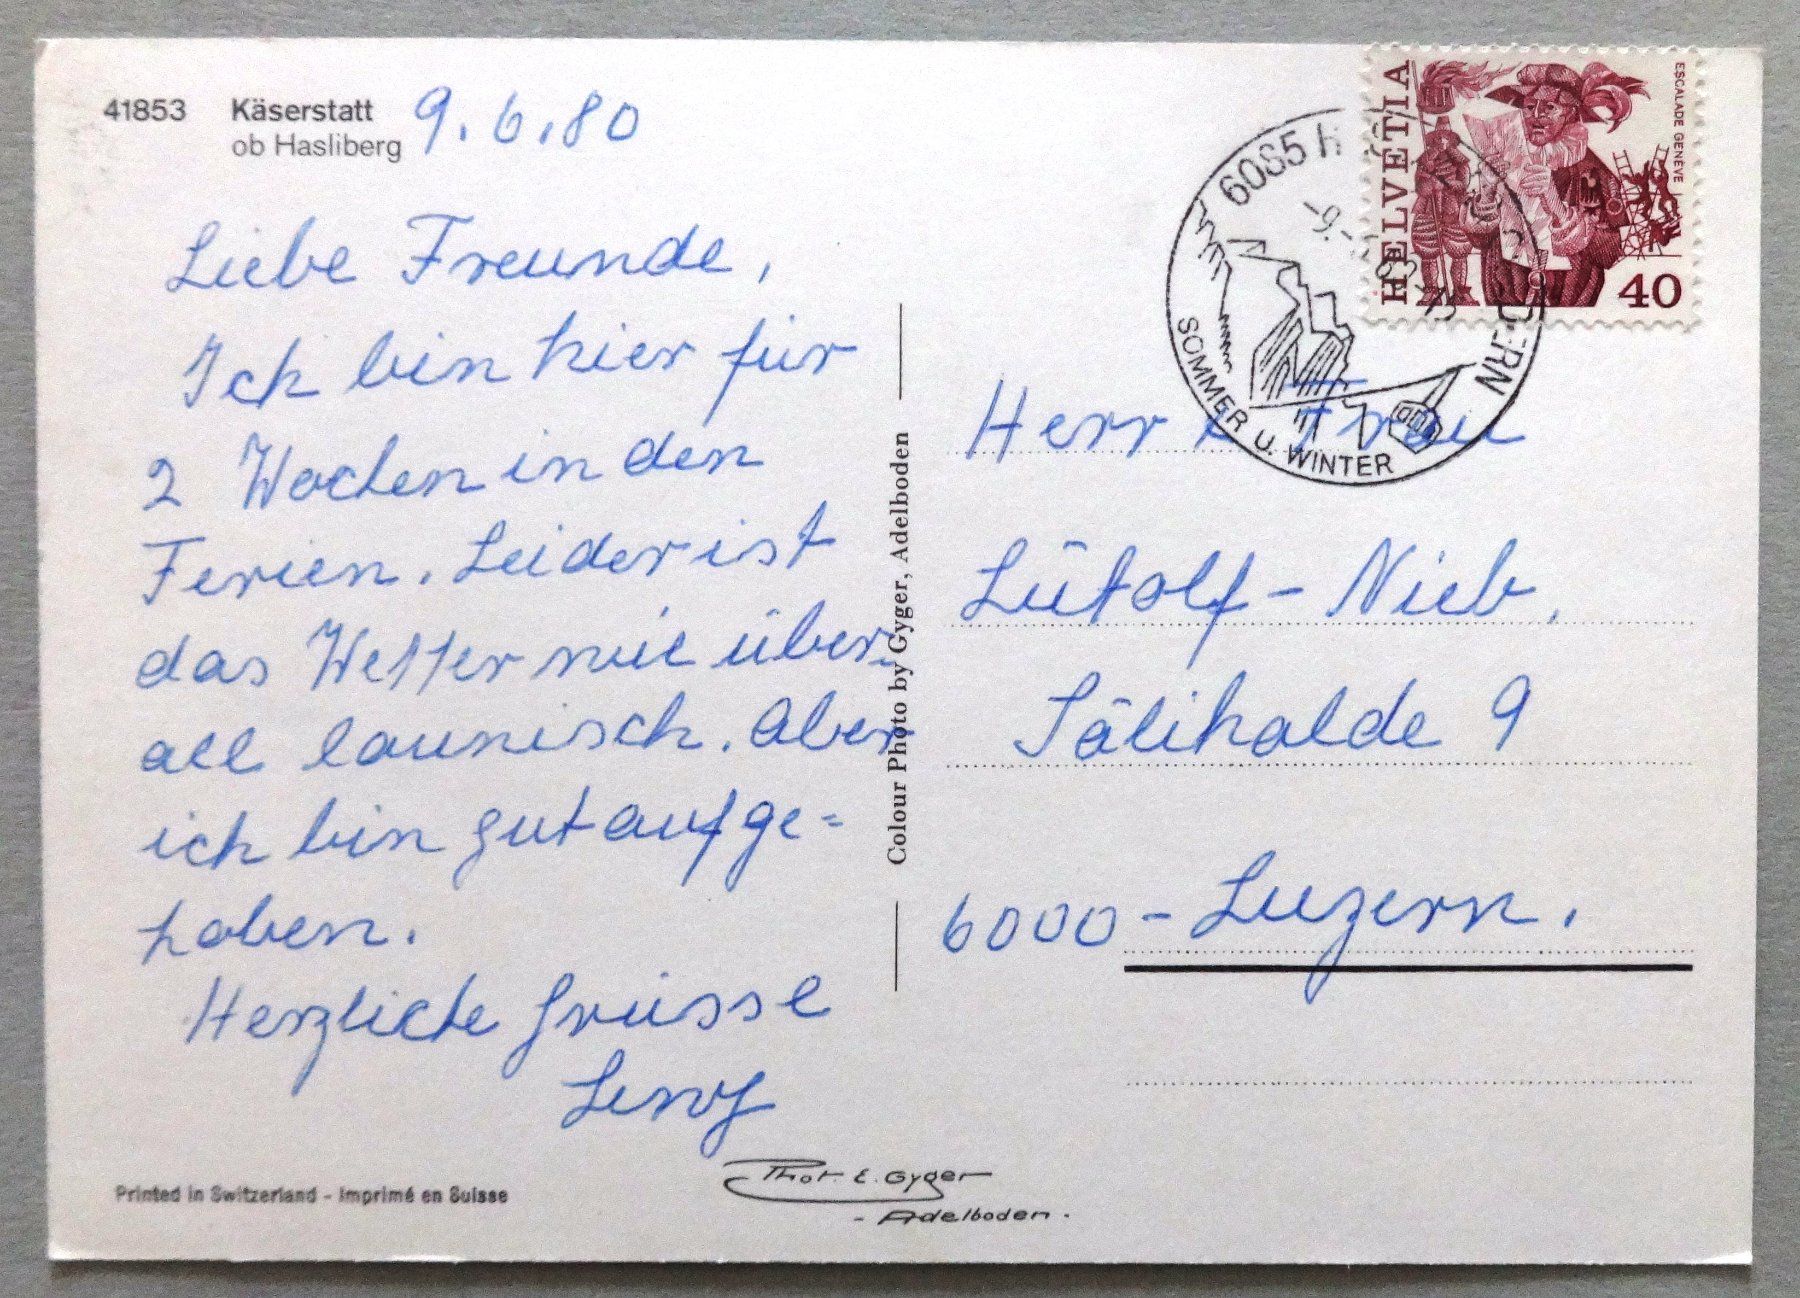 41853 Käserstatt
ob Hasliberg
9.6.80
Liebe Freunde,
Ich bin hier für
2 Wochen in den
Ferien. Leider ist
das Wetter wie über-
all launisch. Aber
ich bin gut aufge=
hoben.
Herzliche Grüsse
Printed in Switzerland - Imprimé en Suisse
Phot. E. Gyger
- Adelboden -
Colour Photo by Gyger, Adelboden
HELVETIA
ESCALADE GENÈVE
40
6085
-9.
BERN
SOMMER U. WINTER
Herr & Frau
Lütolf-Nieb.
Sälihalde 9
6000 - Luzern.